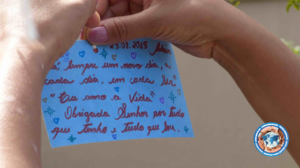 03.07.2018
sempre um novo dia, a
cada dia, em cada Ser"
"Eu amo a Vida"
Obrigada Senhor por tudo
que tenho e tudo que Sou.